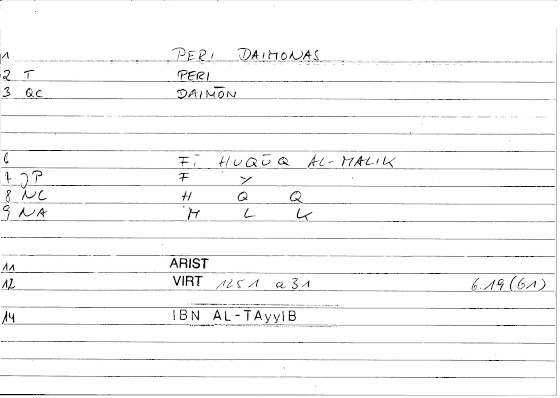 1 PERI DAIMONAS
2 T PERI
3 QC DAIMŌN
6 FĪ HUQŪQ AL-MALIK
7 JP F Y
8 NC H Q Q
9 NA M L K
11 ARIST
12 VIRT 1251 a 31 6.19(61)
14 IBN AL-TAyyIB